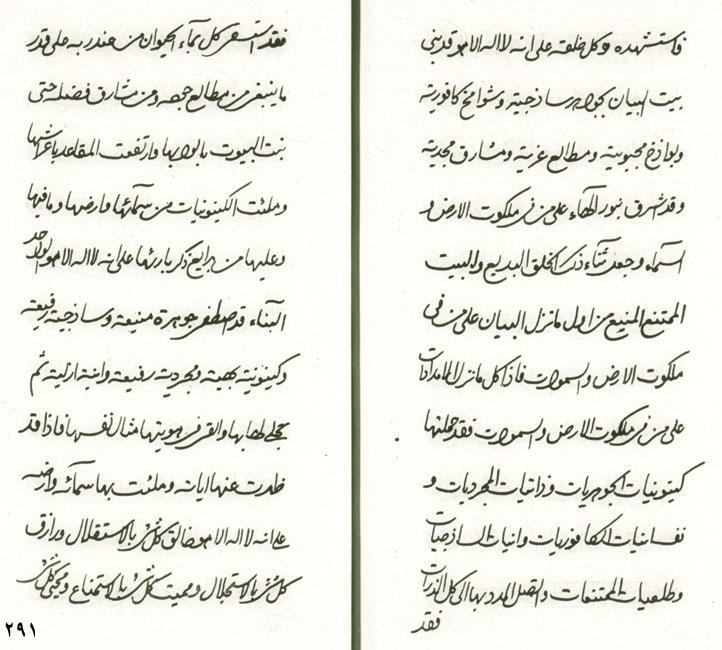 فاستشهده وكل خلقه على انه لا اله الا هو قد بنى
بيت البيان بجواهر ساذجية وشوامخ كافورية
وبواذخ محبوبية ومطالع عزية ومشارق مجدية
وقد اشرق بنور البهاء على من فى ملكوت الارض و
السماء وجعل ثناء ذلك الخلق البديع والبيت
الممتنع المنيع من اول ما نزل البيان على من فى
ملكوت الارض والسموات فاذا كل ما نزل الامدادات
على من فى ملكوت الارض والسموات فقد حملتها
كينونيات الجوهريات وذاتيات المجرديات و
نفسانيات الكافوريات وانيات الساذجيات
وطلعيات الممتنعات واتصل المدد بها الى كل الذرات
فقد
فقد استقر كل بماء الحيوان من عند ربه على قدر
ما ينبغى من مطالع وحيه ومن مشارق فضله حتى
بنت البيوت بابوابها وارتفعت المقاعد باعراشها
وملئت الكينونيات من سمائها وارضها وما فيها
وعليها من بدايع ذكر بارئها على انه لا اله الا هو الواحد
البناء قد اصطفى جوهرة منيعة وساذجية رفيعة
وكينونية بهية ومجردية رفيعة وانية ازلية ثم
تجلى لها بها والقى فى هويتها مثال نفسها فاذا قد
ظهرت عنها اياته وملئت بها سمائه وارضه
على انه لا اله الا هو خالق كل شئ بالاستقلال ورازق
كل شئ بالاستجلال ومميت كل شئ بالاستمناع ومحيى كل شئ
٢٩١